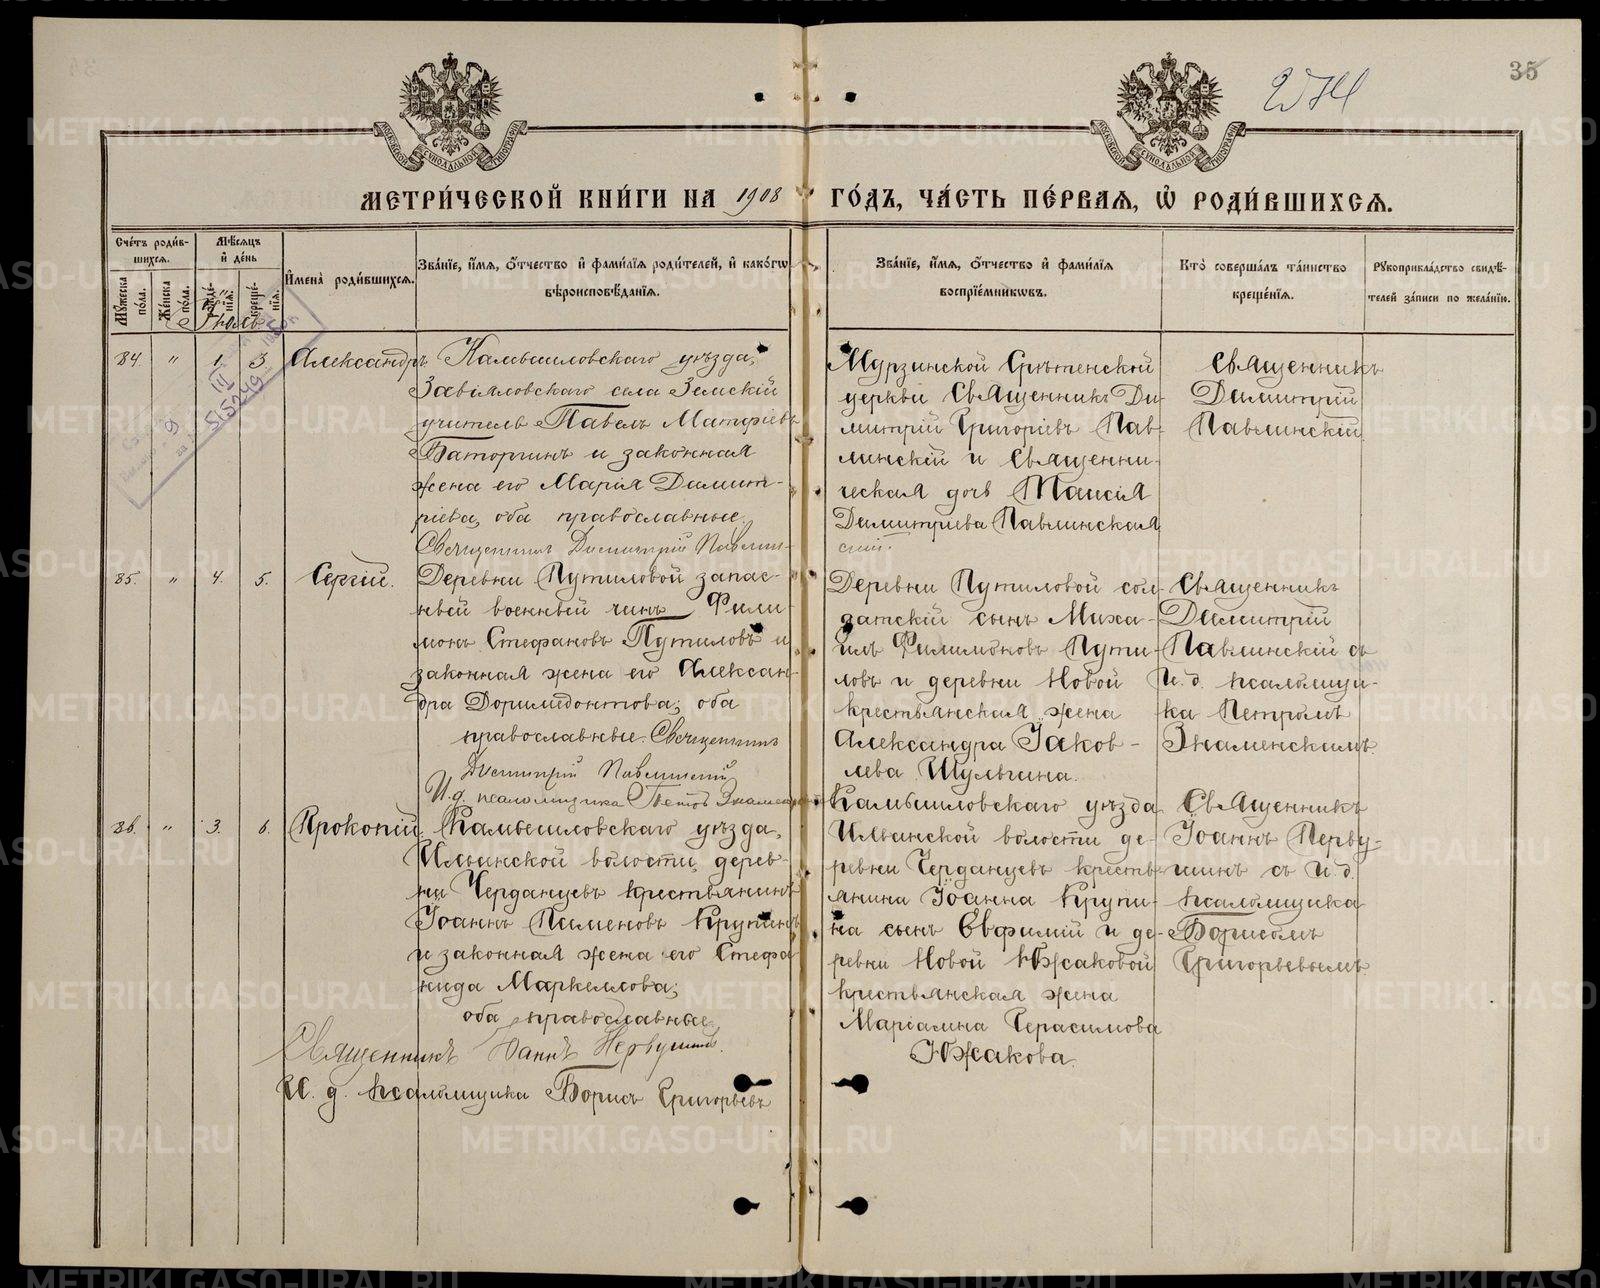 35
МЕТРИ́ЧЕСКОЙ КНИ́ГИ НА 1908 ГО́ДЪ, ЧА́СТЬ ПЕ́РВАЯ, Ѽ РОДИ́ВШИХСЯ.
Сче́тъ роди́в-
шихся.
Мѣ́сяцъ
и҆ де́нь
И҆мена̀ роди́вшихся.
Зва́нїе, и҆́мя, ѻ҆́тчество и҆ фами́лїя роди́телей, и҆ како́гѡ
вѣроисповѣ́данїя.
Зва́нїе, и҆́мя, ѻ҆́тчество и҆ фами́лїя
воспрїе́мникѡвъ.
Кто̀ соверша́лъ та́инство
креще́нїя.
Рꙋкоприкла́дство свидѣ́-
телей за́писи по жела́нїю.
Мꙋ́жеска
по́ла.
Же́нска
по́ла.
рожде́-
нїя.
креще́-
нїя.
84. " 1. 3. Александръ
Камышловскаго уѣзда,
Завьяловскаго села Земскій
учитель Павелъ Матфіевъ
Баторгинъ и законная
жена его Марія Димит-
ріева, оба православные.
Священникъ Димитрій Павлин-
скій.
Мурзинской Срѣтенской
церкви Священникъ Ди-
митрій Григоріевъ Пав-
линскій и Священни-
ческая дочь Таисія
Димитріева Павлинская
Священникъ
Димитрій
Павлинскій
85. " 4. 5. Сергій.
Деревни Путиловой запас-
ный военный чинъ Фили-
монъ Стефановъ Путиловъ и
законная жена его Алексан-
дра Доримедонтова; оба
православные. Священникъ
Димитрій Павлинскій
И.д. псаломщика Петръ Знаменскій
Деревни Путиловой сол-
датскій сынъ Миха-
илъ Филимоновъ Пути-
ловъ и деревни Новой
крестьянская жена
Александра Іаков-
лева Шульгина.
Священникъ
Димитрій
Павлинскій съ
И.д. псаломщи-
ка Петромъ
Знаменскимъ
86. " 3. 6. Прокопій.
Камышловскаго уѣзда,
Ильинской волости, дерев-
ни Черданцевъ крестьянинъ
Іоаннъ Пименовъ Крупинъ
и законная жена его Стефа-
нида Маркеллова;
оба православные.
Священникъ Іоаннъ Первушинъ.
И. д. псаломщика Борисъ Григорьевъ
Камышловскаго уѣзда
Ильинской волости де-
ревни Черданцевъ кресть-
янина Іоанна Крупи-
на сынъ Евфимій и де-
ревни Новой Южаковой
крестьянская жена
Маріамна Герасимова
Южакова.
Священникъ
Іоаннъ Перву-
шинъ съ И.д.
псаломщика
Борисомъ
Григорьевымъ
METRIKI.GASO-URAL.RU